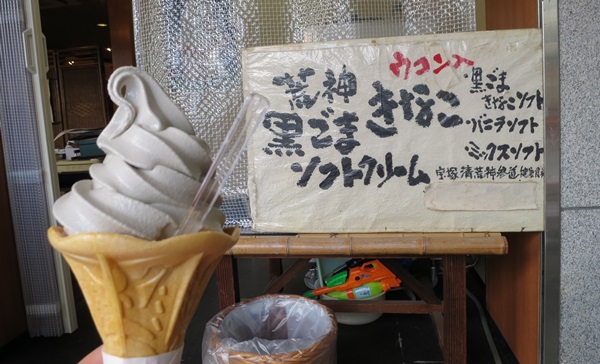 ウコン入
荒神
黒ごま きなこ
ソフトクリーム
・黒ごま
きなこソフト
・バニラソフト
・ミックスソフト
宝塚清荒神参道